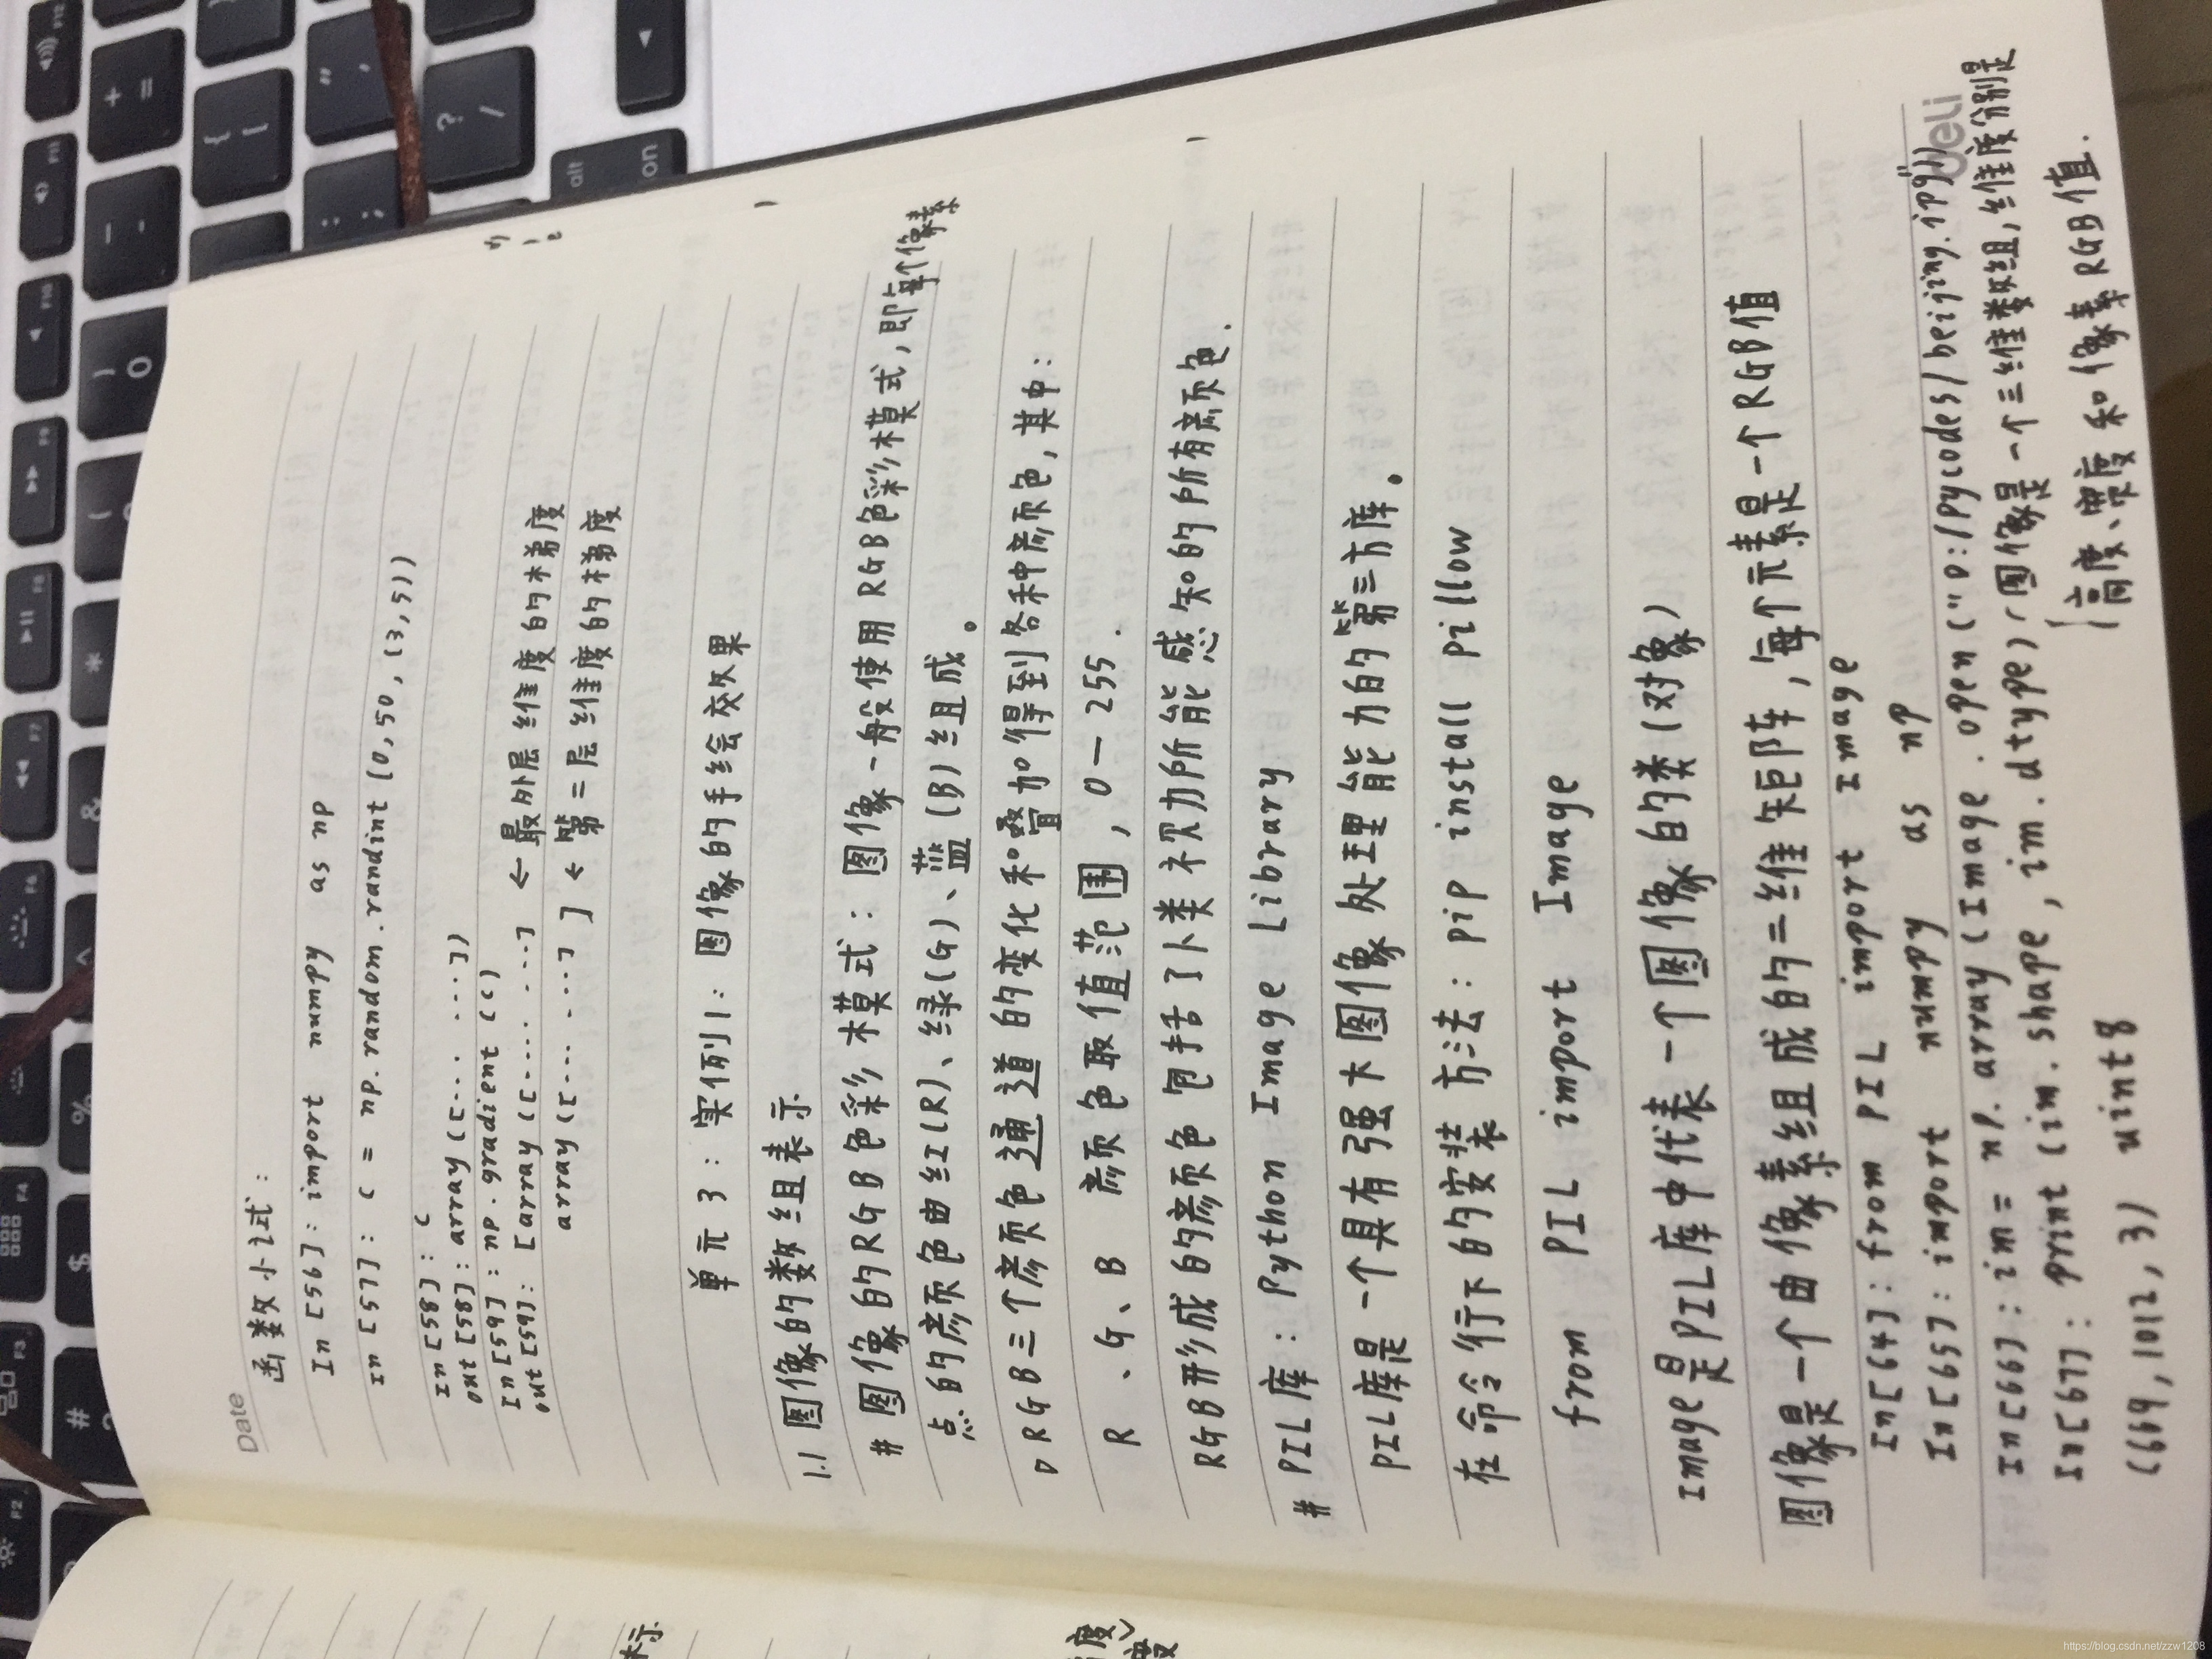 Date
函数小试：
In [56]: import numpy as np
In [57]: c = np.random.randint (0, 50, (3,5))
In [58]: c
out [58]: array ([---- ----])
In [59]: np.gradient (c)
out [59]: [array ([---- ---] ← 最外层维度的梯度
array ([--- ---] ] ← 第二层维度的梯度
单元3：实例1：图像的手绘效果
1.1 图像的数组表示
# 图像的RGB色彩模式：图像一般使用RGB色彩模式，即每个像素
点的颜色由红(R)、绿(G)、蓝(B)组成。
▷ RGB三个颜色通道的变化和叠加得到各种颜色，其中：
R、G、B 颜色取值范围，0—255.
RGB形成的颜色包括了人类视力所能感知的所有颜色.
# PIL库：Python Image Library
PIL库是一个具有强大图像处理能力的第三方库。
在命令行下的安装方法：pip install pillow
from PIL import Image
Image是PIL库中代表一个图像的类(对象)
图像是一个由像素组成的二维矩阵，每个元素是一个RGB值
In[64]: from PIL import Image
In[65]: import numpy as np
In[66]: im = np.array (Image.open ("D:/pycodes/beijing.jpg"))
In[67]: print (im.shape, im.dtype) 图像是一个三维数组,维度分别是
高度、宽度和像素RGB值.
(669, 1012, 3) uint8
deli
F2
F3
F4
F6
F7
F8
F9
F10
F11
F12
#
$
%
^
&
*
(
)
0
-
+
=
{
[
:
;
"
?
/
alt
on
标
度
https://blog.csdn.net/zzw1208